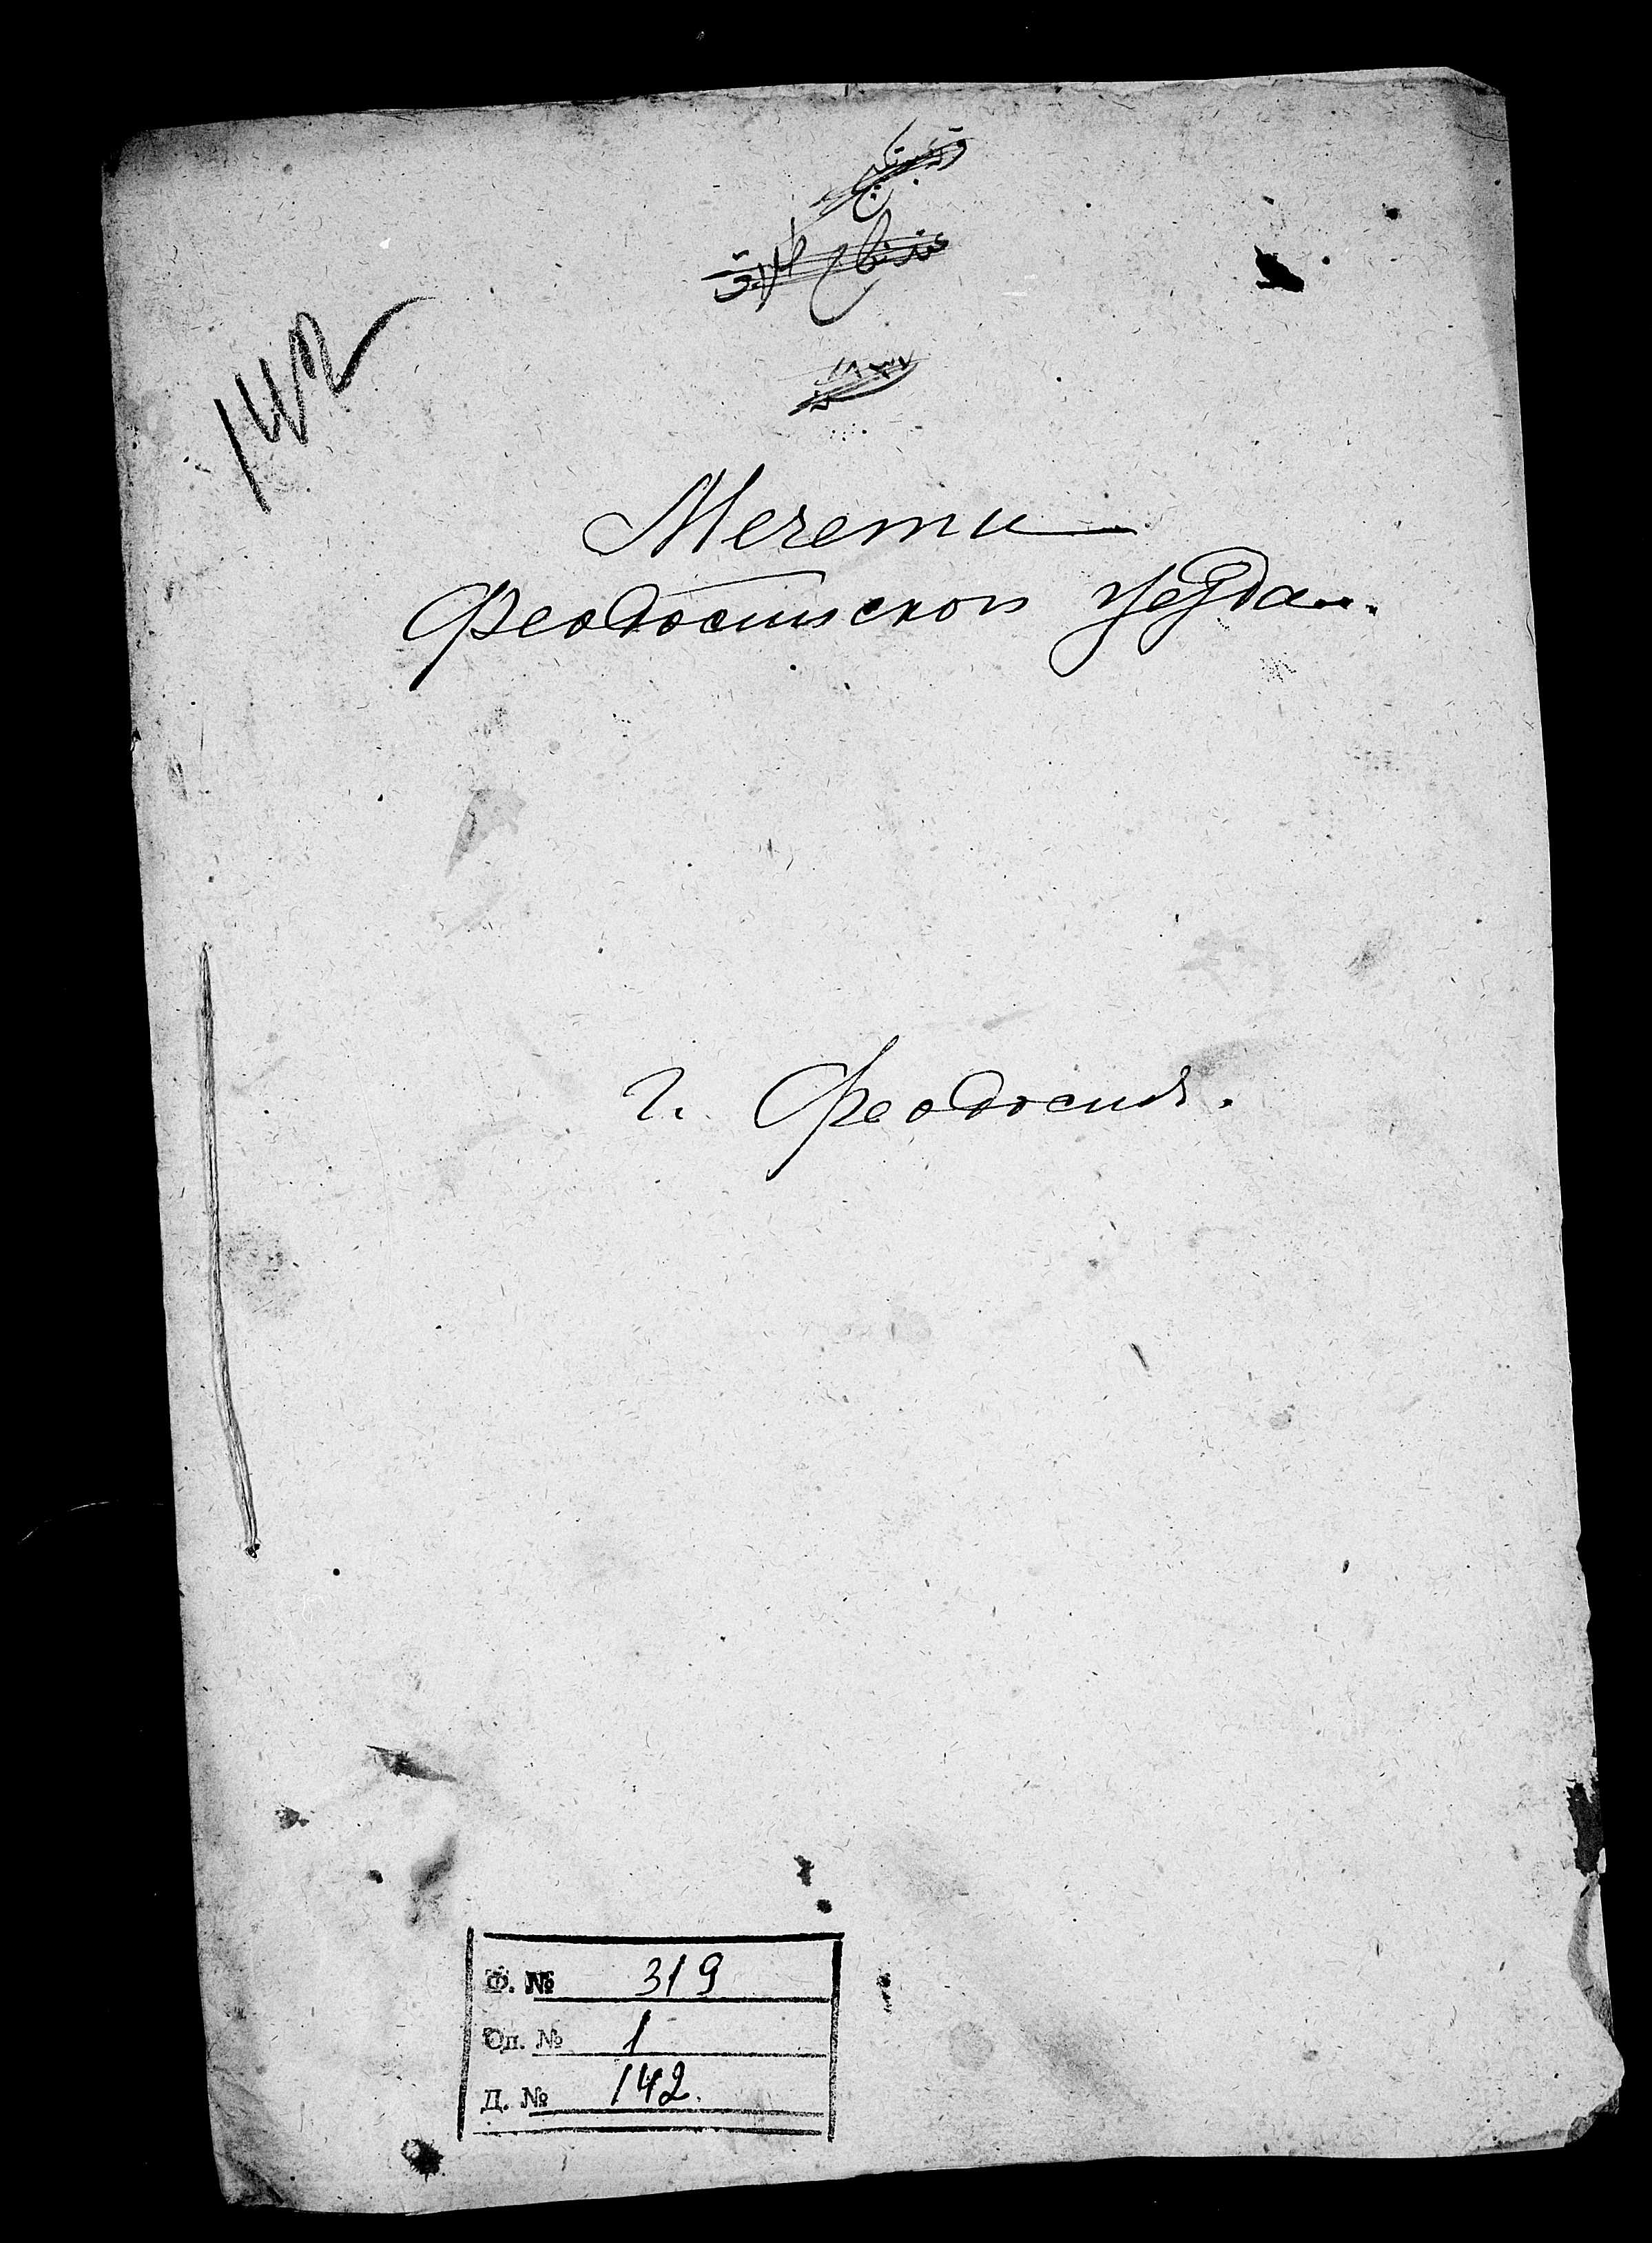 ١٨٣٧
142
Мечети
Феодосійскои уезда.
г. Феодосия.
Ф. № 319
Оп. № 1
Д. № 142.